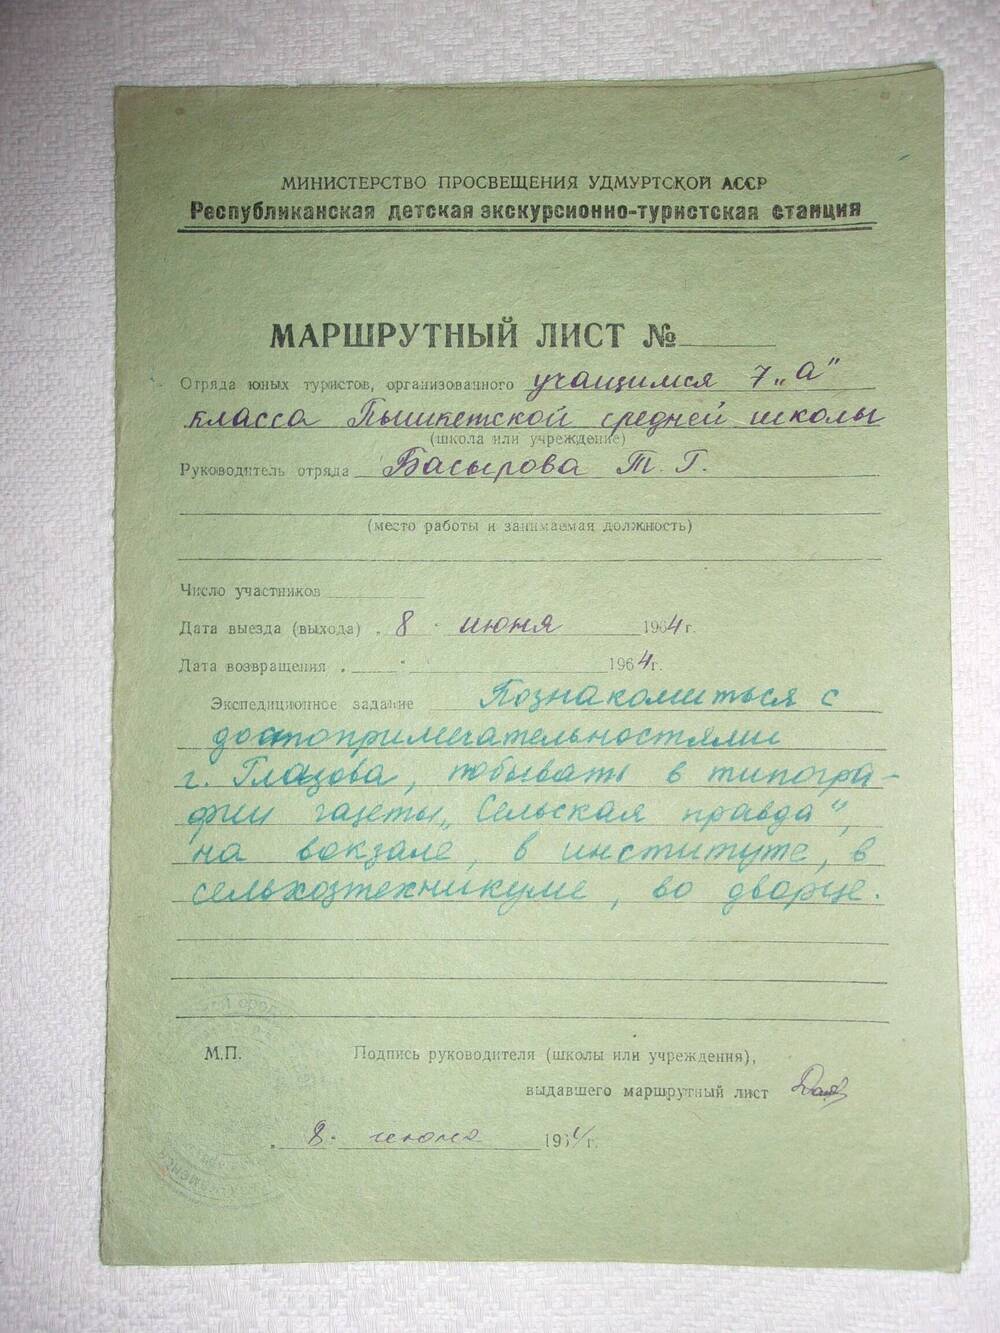 МИНИСТЕРСТВО ПРОСВЕЩЕНИЯ УДМУРТСКОЙ АССР
Республиканская детская экскурсионно-туристская станция
МАРШРУТНЫЙ ЛИСТ №
Отряда юных туристов, организованного учащимся 7 „а"
класса Пышкетской средней школы
(школа или учреждение)
Руководитель отряда Басырова Т. Г.
(место работы и занимаемая должность)
Число участников
Дата выезда (выхода) 8 июня 1964 г.
Дата возвращения 1964 г.
Экспедиционное задание Познакомиться с
достопримечательностями
г. Глазова, побывать в типогра-
фии газеты „Сельская правда",
на вокзале, в институте, в
сельхозтехникуме, во дворце.
М.П. Подпись руководителя (школы или учреждения),
выдавшего маршрутный лист
8. июня 1964 г.